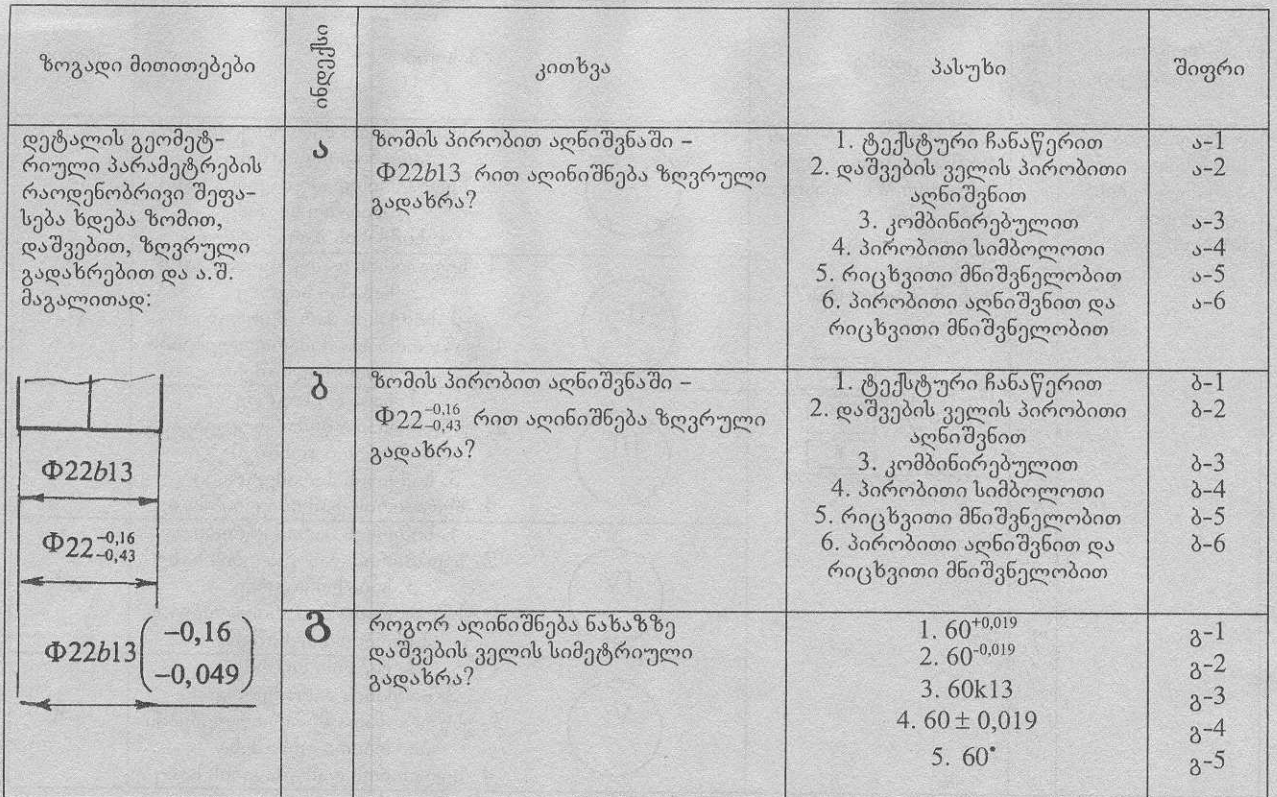 ზოგადი მითითებები
ინდექსი
კითხვა
პასუხი
შიფრი
დეტალის გეომეტ-
რიული პარამეტრების
რაოდენობრივი შეფა-
სება ხდება ზომით,
დაშვებით, ზღვრული
გადახრებით და ა.შ.
მაგალითად:
Φ22b13
Φ22 −0,16 −0,43
Φ22b13 (−0,16 −0,049)
ა
ზომის პირობით აღნიშვნაში –
Φ22b13 რით აღინიშნება ზღვრული
გადახრა?
1. ტექსტური ჩანაწერით ა-1
2. დაშვების ველის პირობითი ა-2
აღნიშვნით
3. კომბინირებულით ა-3
4. პირობითი სიმბოლოთი ა-4
5. რიცხვითი მნიშვნელობით ა-5
6. პირობითი აღნიშვნით და ა-6
რიცხვითი მნიშვნელობით
ბ
ზომის პირობით აღნიშვნაში –
Φ22 −0,16 −0,43 რით აღინიშნება ზღვრული
გადახრა?
1. ტექსტური ჩანაწერით ბ-1
2. დაშვების ველის პირობითი ბ-2
აღნიშვნით
3. კომბინირებულით ბ-3
4. პირობითი სიმბოლოთი ბ-4
5. რიცხვითი მნიშვნელობით ბ-5
6. პირობითი აღნიშვნით და ბ-6
რიცხვითი მნიშვნელობით
გ
როგორ აღინიშნება ნახაზზე
დაშვების ველის სიმეტრიული
გადახრა?
1. 60+0,019 გ-1
2. 60-0,019 გ-2
3. 60k13 გ-3
4. 60 ± 0,019 გ-4
5. 60• გ-5